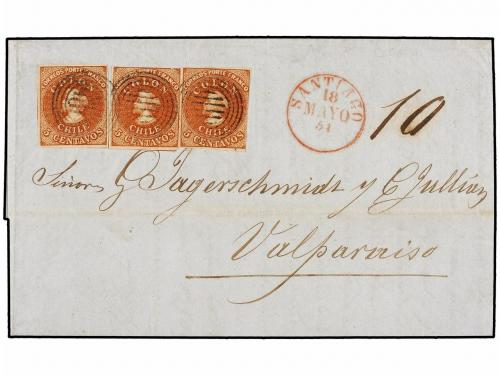 CORREOS PORTE FRANCO CORREOS PORTE FRANCO CORREOS PORTE FRANCO
COLON COLON COLON
CHILE CHILE CHILE
5 CENTAVOS 5 CENTAVOS 5 CENTAVOS
SANTIAGO
18
MAYO
54
10
Señores G Jagerschmidt y C Jullian
Valparaiso